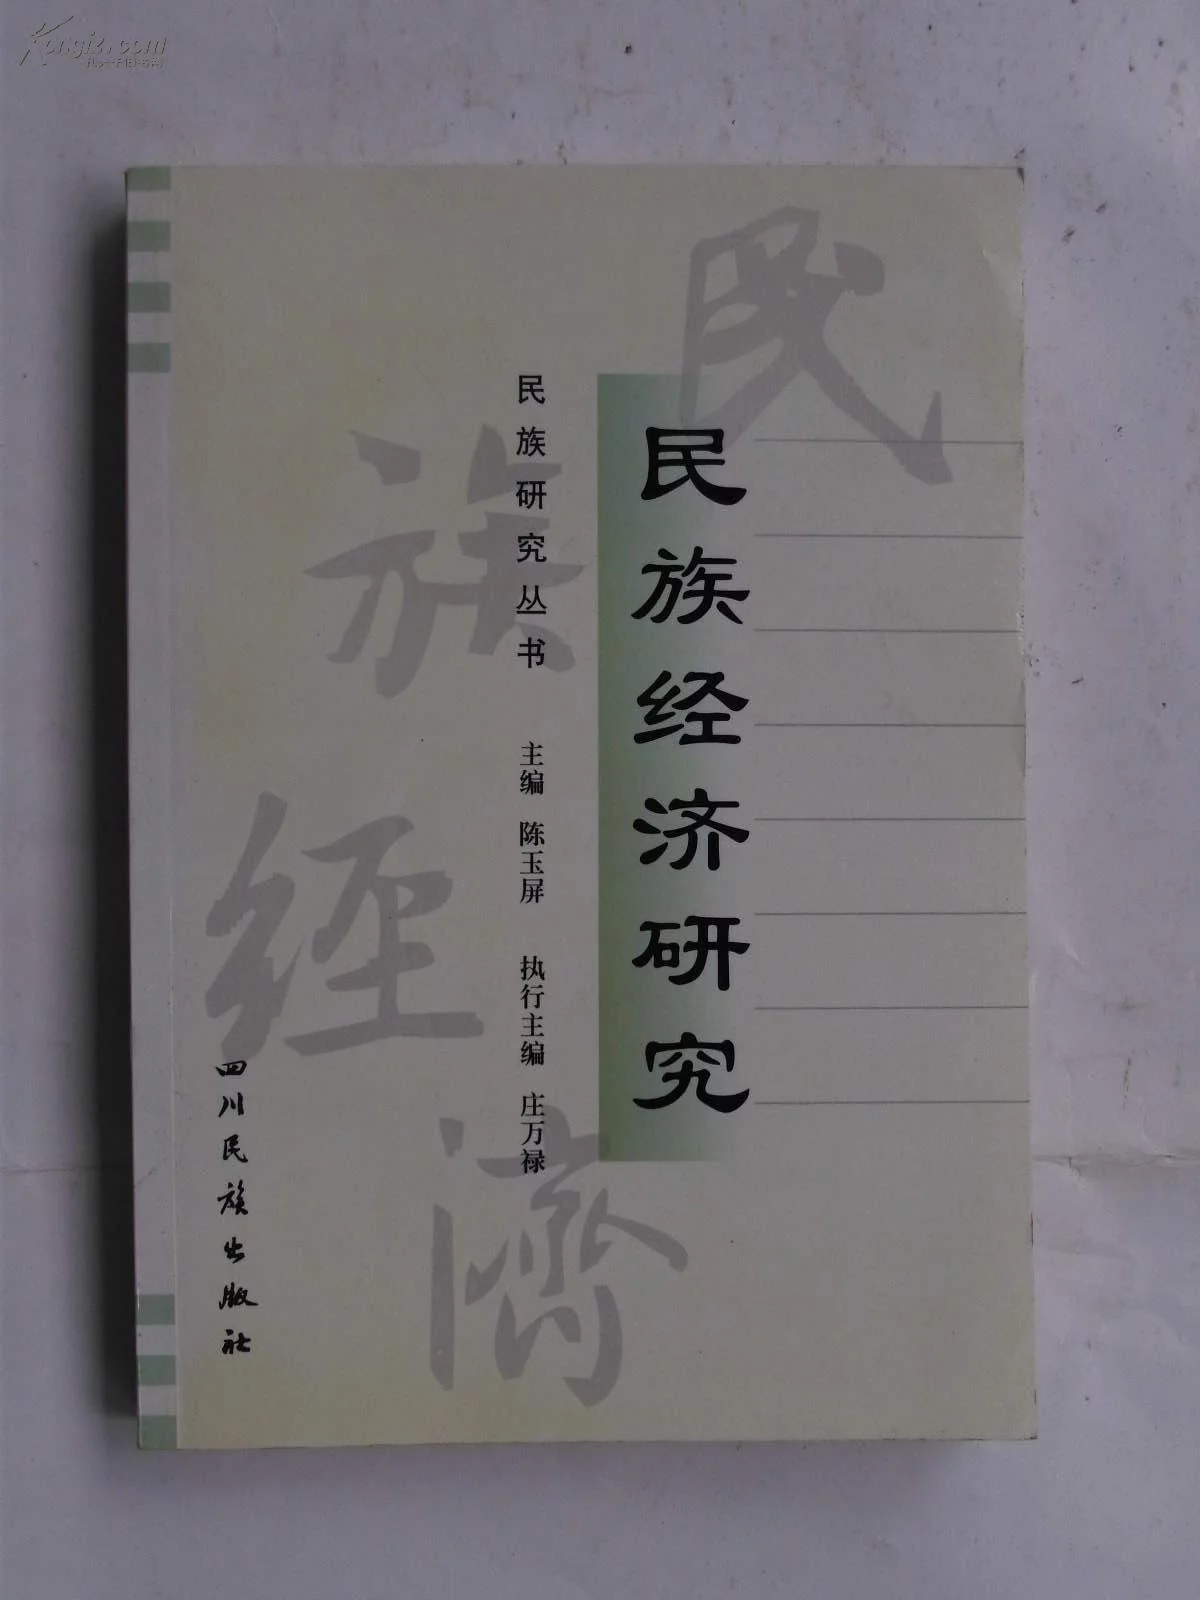 Kongfz.com
孔夫子旧书网
民族经济研究
民族研究丛书
主编 陈玉屏 执行主编 庄万禄
民族
经济
四川民族出版社